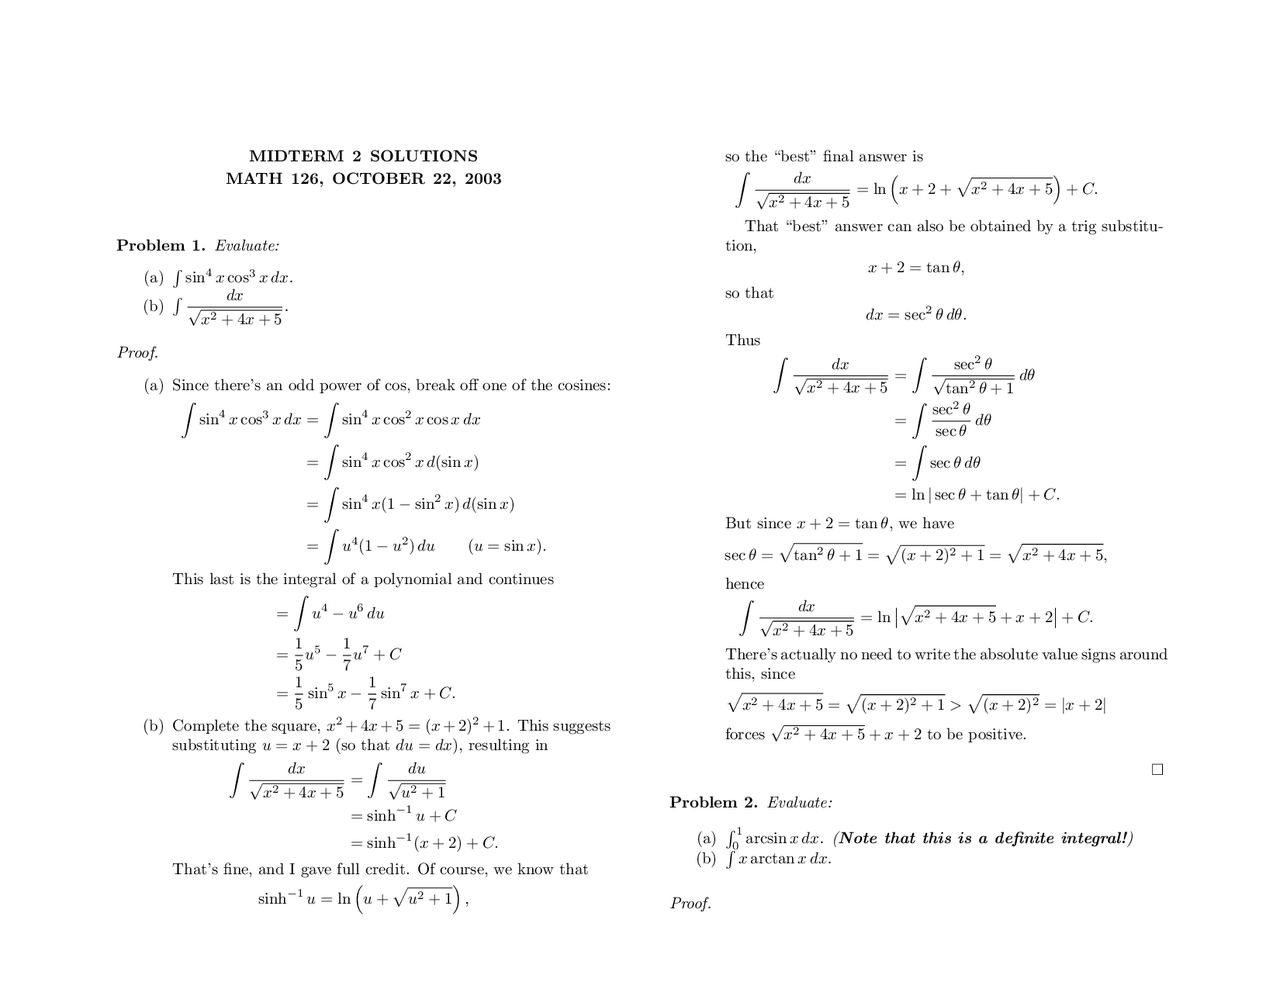 MIDTERM 2 SOLUTIONS
MATH 126, OCTOBER 22, 2003
Problem 1. Evaluate:
(a) ∫ sin⁴ x cos³ x dx.
(b) ∫ dx / √(x² + 4x + 5).
Proof.
(a) Since there's an odd power of cos, break off one of the cosines:
∫ sin⁴ x cos³ x dx = ∫ sin⁴ x cos² x cos x dx
= ∫ sin⁴ x cos² x d(sin x)
= ∫ sin⁴ x(1 − sin² x) d(sin x)
= ∫ u⁴(1 − u²) du (u = sin x).
This last is the integral of a polynomial and continues
= ∫ u⁴ − u⁶ du
= 1/5 u⁵ − 1/7 u⁷ + C
= 1/5 sin⁵ x − 1/7 sin⁷ x + C.
(b) Complete the square, x² + 4x + 5 = (x + 2)² + 1. This suggests
substituting u = x + 2 (so that du = dx), resulting in
∫ dx / √(x² + 4x + 5) = ∫ du / √(u² + 1)
= sinh⁻¹ u + C
= sinh⁻¹(x + 2) + C.
That's fine, and I gave full credit. Of course, we know that
sinh⁻¹ u = ln (u + √(u² + 1)),
so the “best” final answer is
∫ dx / √(x² + 4x + 5) = ln (x + 2 + √(x² + 4x + 5)) + C.
That “best” answer can also be obtained by a trig substitu-
tion,
x + 2 = tan θ,
so that
dx = sec² θ dθ.
Thus
∫ dx / √(x² + 4x + 5) = ∫ sec² θ / √(tan² θ + 1) dθ
= ∫ sec² θ / sec θ dθ
= ∫ sec θ dθ
= ln | sec θ + tan θ| + C.
But since x + 2 = tan θ, we have
sec θ = √(tan² θ + 1) = √((x + 2)² + 1) = √(x² + 4x + 5),
hence
∫ dx / √(x² + 4x + 5) = ln |√(x² + 4x + 5) + x + 2| + C.
There's actually no need to write the absolute value signs around
this, since
√(x² + 4x + 5) = √((x + 2)² + 1) > √((x + 2)²) = |x + 2|
forces √(x² + 4x + 5) + x + 2 to be positive.
□
Problem 2. Evaluate:
(a) ∫₀¹ arcsin x dx. (Note that this is a definite integral!)
(b) ∫ x arctan x dx.
Proof.